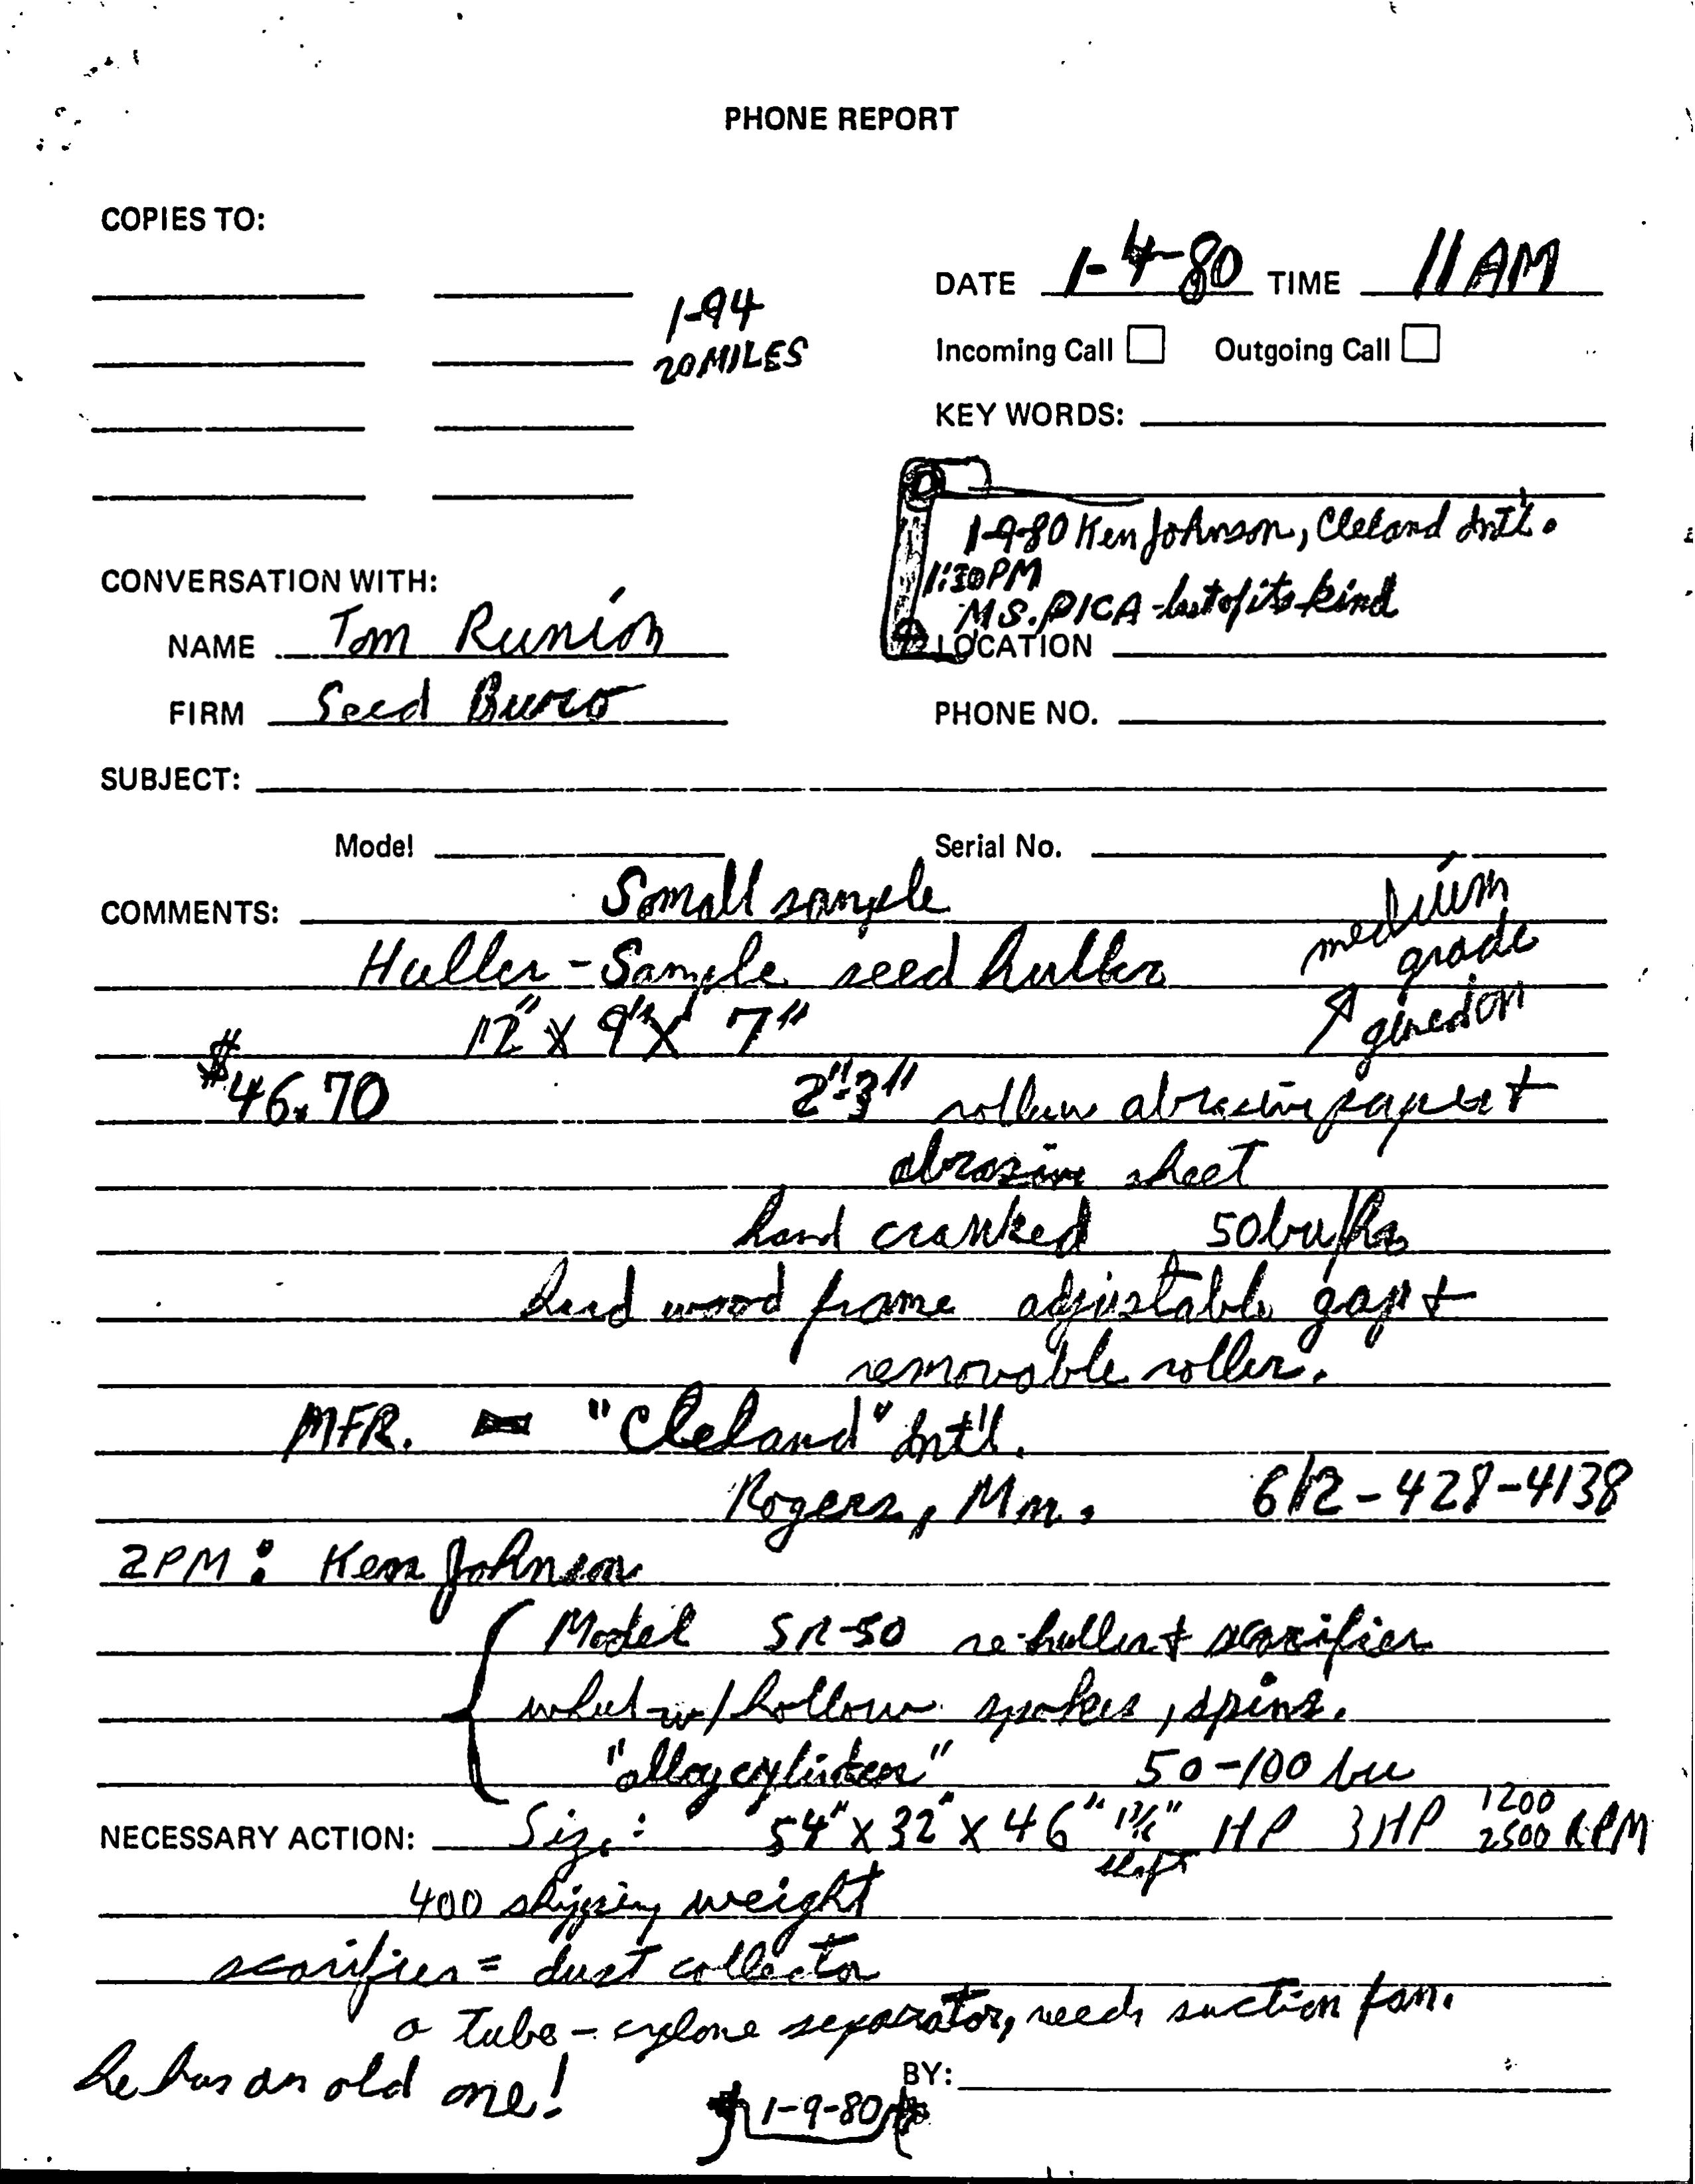 PHONE REPORT
COPIES TO:
DATE 1-4-80 TIME 11 AM
1-94
20 MILES
Incoming Call Outgoing Call
KEY WORDS:
1-9-80 Ken Johnson, Cleland Intl.
1:30 PM
MS. PICA - last of its kind
CONVERSATION WITH:
NAME Tom Runion
LOCATION
FIRM Seed Buro
PHONE NO.
SUBJECT:
Model Serial No.
COMMENTS: Small sample
medium
grade
Huller - Sample seed huller
12" X 9" X 7"
$46.70
2"-3" rollers abrasive paper +
abrasive sheet
hand cranked 50bu/hr
hard wood frame adjustable gap +
removable roller.
MFR. = "Cleland" Int'l.
Rogers, Mn. 612-428-4138
2PM: Ken Johnson
Model SR-50 re-huller + scarifier
wheel w/ hollow spokes, spins.
"alloy cylinder" 50-100 bu
NECESSARY ACTION: Size: 54" X 32" X 46" shaft HP 3 HP 1200
2500 RPM
400 shipping weight
scarifier = dust collector
a tube - cyclone separator, needs suction fan.
he has an old one!
BY:
1-9-80